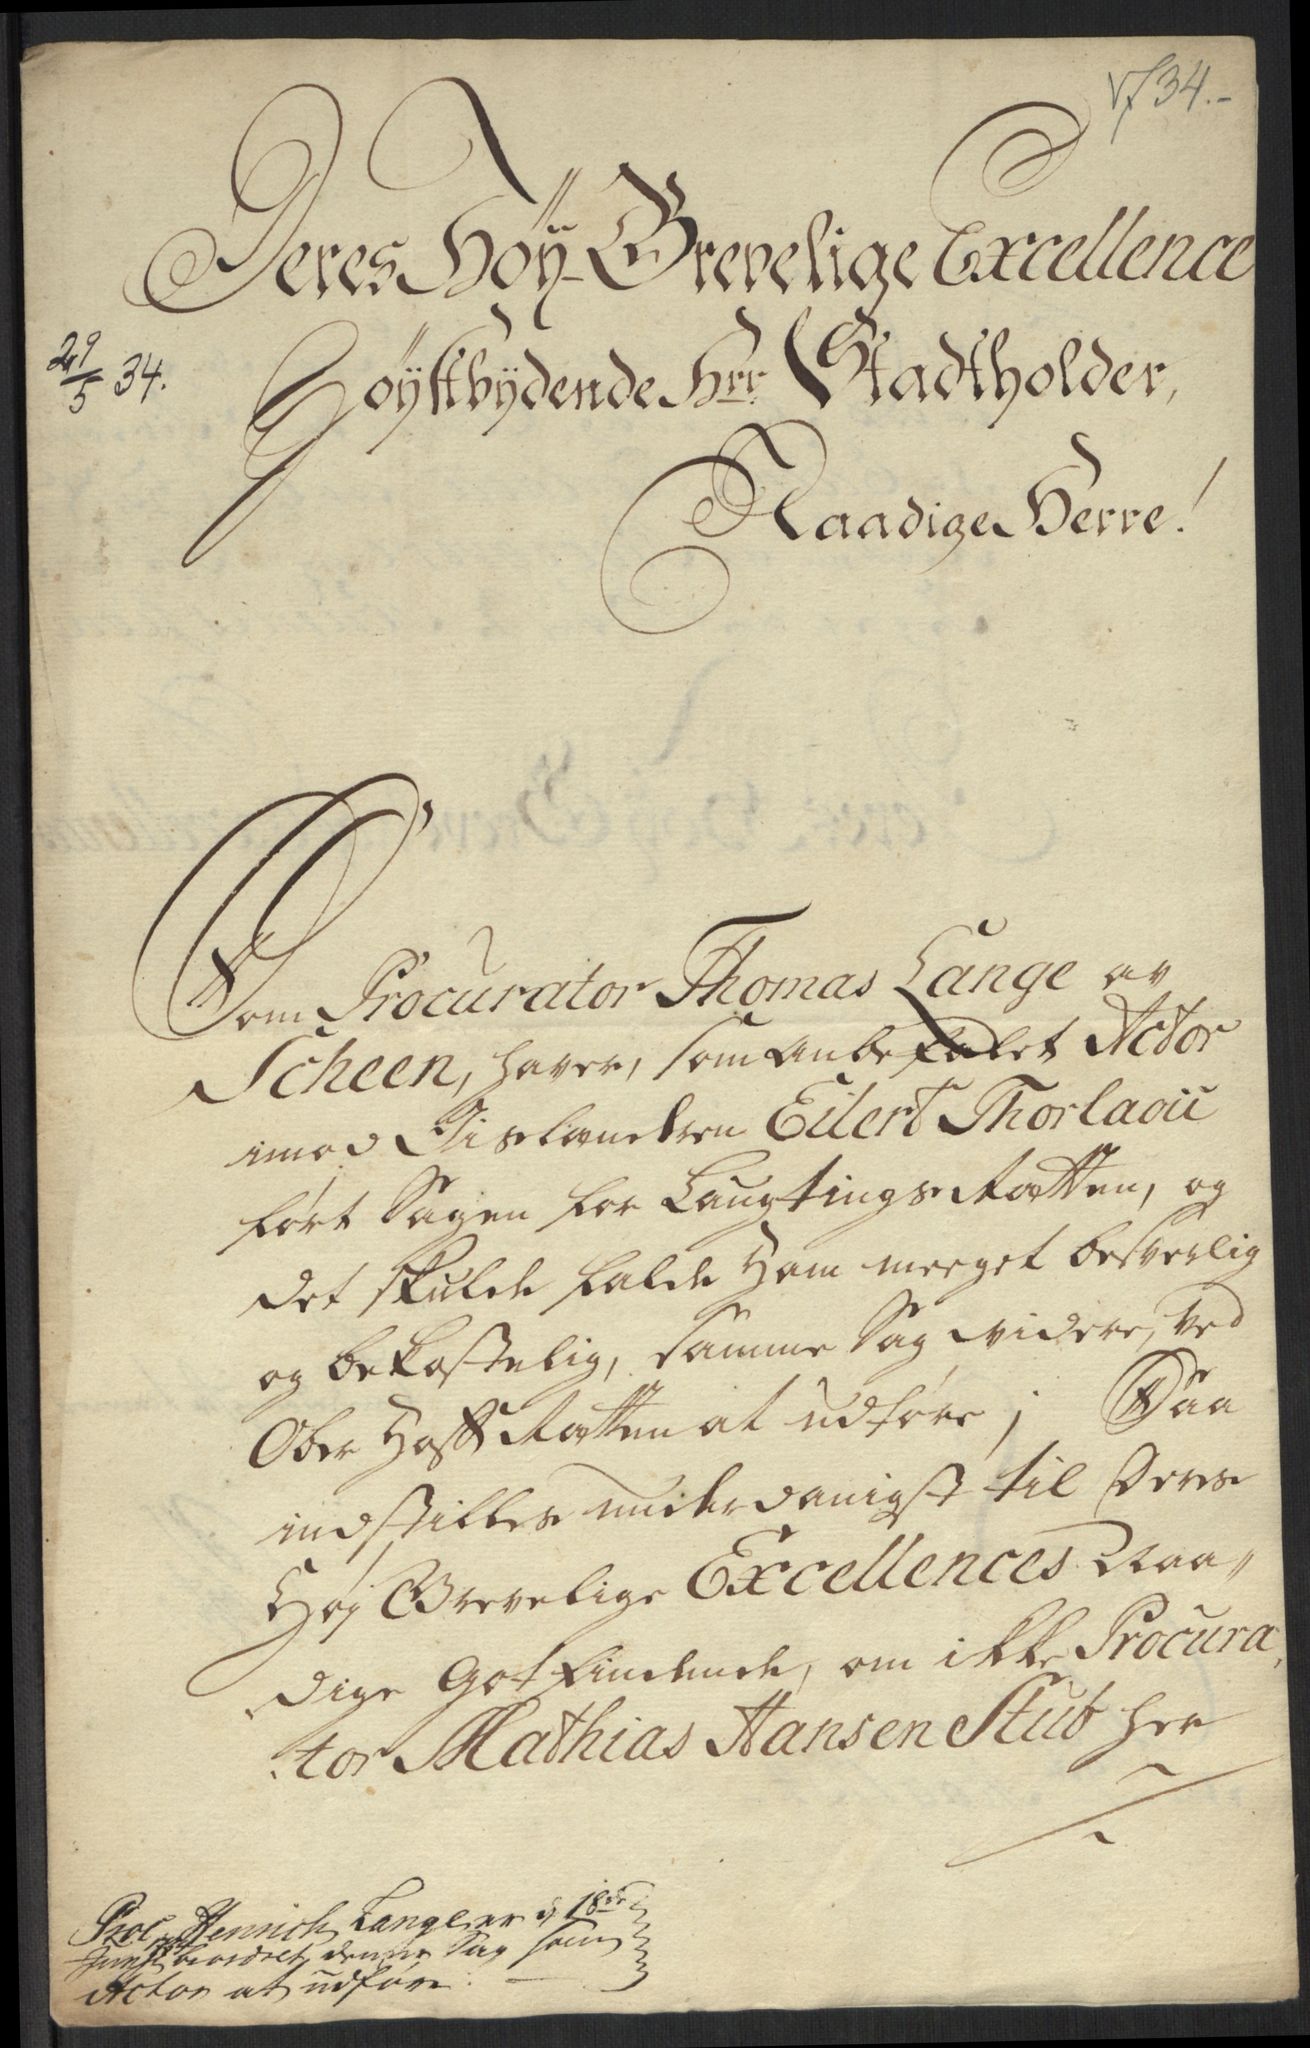 734.-
Deres Høÿ-Grevelige Excellence
29/5 34.
Høÿstbÿdende Hrr Stadtholder,
Naadige Herre!
Som Procurator Thomas Lange av
Scheen, haver, som anbefalet Actor
imod Iislænderen Eilert Thorlaoii
ført Sagen for Laugtings Rætten, og
det skulde falde Ham meeget besverlig
og bekostelig, samme Sag videre, ved
Ober Hoff Rætten at udføre; Saa
indstilles underdanigst til Deres
Høj Grevelige Excellences Naa-
dige Gotfindende, om ikke Procura-
tor Mathias Hansen Stub her
Proc. Henrich Lange er d 18de
Junÿ beordret denne Sag som
Actor at udføre.